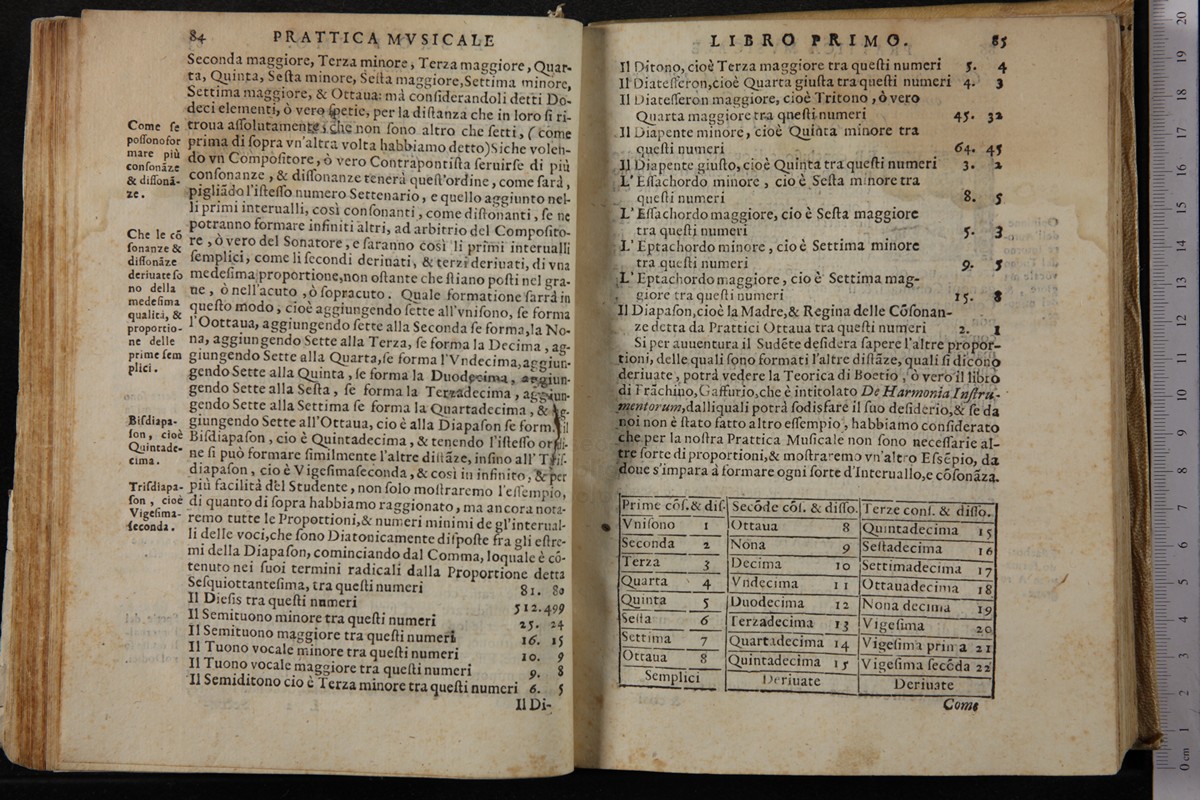 84 PRATTICA MVSICALE
Seconda maggiore, Terza minore, Terza maggiore, Quar-
ta, Quinta, Seſta minore, Seſta maggiore, Settima minore,
Settima maggiore, & Ottaua: mà conſiderandoli detti Do-
deci elementi, ò vero ſpetie, per la diſtanza che in loro ſi ri-
troua aſſolutamente, che non ſono altro che ſetti, (come
prima di ſopra vn'altra volta habbiamo detto) Siche volen-
do vn Compoſitore, ò vero Contrapontiſta ſeruirſe di più
conſonanze, & diſſonanze tenerà queſt'ordine, come ſarà,
pigliãdo l'iſteſſo numero Settenario, e quello aggiunto nel-
li primi interualli, così conſonanti, come diſſonanti, ſe ne
potranno formare infiniti altri, ad arbitrio del Compoſito-
re, ò vero del Sonatore, e ſaranno così li primi interualli
ſemplici, come li ſecondi deriuati, & terzi deriuati, di vna
medeſima proportione, non oſtante che ſtiano poſti nel gra-
ue, ò nell'acuto, ò ſopracuto. Quale formatione ſarrà in
queſto modo, cioè aggiungendo ſette all'vniſono, ſe forma
l'Oottaua, aggiungendo ſette alla Seconda ſe forma, la No-
na, aggiungendo Sette alla Terza, ſe forma la Decima, ag-
giungendo Sette alla Quarta, ſe forma l'Vndecima, aggiun-
gendo Sette alla Quinta, ſe forma la Duodecima, aggiun-
gendo Sette alla Seſta, ſe forma la Terzadecima, aggiun-
gendo Sette alla Settima ſe forma la Quartadecima, & ag-
giungendo Sette all'Ottaua, cioè alla Diapaſon ſe forma il
Biſdiapaſon, cioè Quintadecima, & tenendo l'iſteſſo ordi-
ne ſi può formare ſimilmente l'altre diſtãze, inſino all' Triſ-
diapaſon, cioè Vigeſimaſeconda, & così in infinito, & per
più facilità del Studente, non ſolo moſtraremo l'eſſempio,
di quanto di ſopra habbiamo raggionato, ma ancora nota-
remo tutte le Propottioni, & numeri minimi de gl'interual-
li delle voci, che ſono Diatonicamente diſpoſte fra gli eſtre-
mi della Diapaſon, cominciando dal Comma, loquale è cõ-
tenuto nei ſuoi termini radicali dalla Proportione detta
Seſquiottanteſima, tra queſti numeri 81. 80
Il Dieſis tra queſti numeri 512.499
Il Semituono minore tra queſti numeri 25. 24
Il Semituono maggiore tra queſti numeri 16. 15
Il Tuono vocale minore tra queſti numeri 10. 9
Il Tuono vocale maggiore tra queſti numeri 9. 8
Il Semiditono cio è Terza minore tra queſti numeri 6. 5
Il Di-
Come ſe
poſſono for
mare più
conſonãze
& diſſonã-
ze.
Che le cõ
ſonanze &
diſſonãze
deriuate ſo
no della
medeſima
qualità, &
proportio-
ne delle
prime ſem
plici.
Biſdiapa-
ſon, cioè
Quintade-
cima.
Triſdiapa-
ſon, cioè
Vigeſima-
ſeconda.
LIBRO PRIMO. 85
Il Ditono, cioè Terza maggiore tra queſti numeri 5. 4
Il Diateſſeron, cioè Quarta giuſta tra queſti numeri 4. 3
Il Diateſſeron maggiore, cioè Tritono, ò vero
Quarta maggiore tra queſti numeri 45. 32
Il Diapente minore, cioè Quinta minore tra
queſti numeri 64. 45
Il Diapente giuſto, cioè Quinta tra queſti numeri 3. 2
L'Eſſachordo minore, cio è Seſta minore tra
queſti numeri 8. 5
L'Eſſachordo maggiore, cio è Seſta maggiore
tra queſti numeri 5. 3
L'Eptachordo minore, cio è Settima minore
tra queſti numeri 9. 5
L'Eptachordo maggiore, cio è Settima mag-
giore tra queſti numeri 15. 8
Il Diapaſon, cioè la Madre, & Regina delle Cõſonan-
ze detta da Prattici Ottaua tra queſti numeri 2. 1
Si per auuentura il Sudẽte deſidera ſapere l'altre propor-
tioni, delle quali ſono formati l'altre diſtãze, quali ſi dicono
deriuate, potrà vedere la Teorica di Boetio, ò vero il libro
di Frãchino, Gaffurio, che è intitolato De Harmonia Inſtru-
mentorum, dalliquali potrà ſodisfare il ſuo deſiderio, & ſe da
noi non è ſtato fatto altro eſſempio, habbiamo conſiderato
che per la noſtra Prattica Muſicale non ſono neceſſarie al-
tre ſorte di proportioni, & moſtraremo vn'altro Eſsẽpio, da
doue s'impara à formare ogni ſorte d'Interuallo, e cõſonãza.
Prime cõſ. & diſ. Secõde cõſ. & diſſo. Terze conſ. & diſſo.
Vniſono 1 Ottaua 8 Quintadecima 15
Seconda 2 Nona 9 Seſtadecima 16
Terza 3 Decima 10 Settimadecima 17
Quarta 4 Vndecima 11 Ottauadecima 18
Quinta 5 Duodecima 12 Nona decima 19
Seſta 6 Terzadecima 13 Vigeſima 20
Settima 7 Quartadecima 14 Vigeſima prima 21
Ottaua 8 Quintadecima 15 Vigeſima ſecõda 22
Semplici Deriuate Deriuate
Come